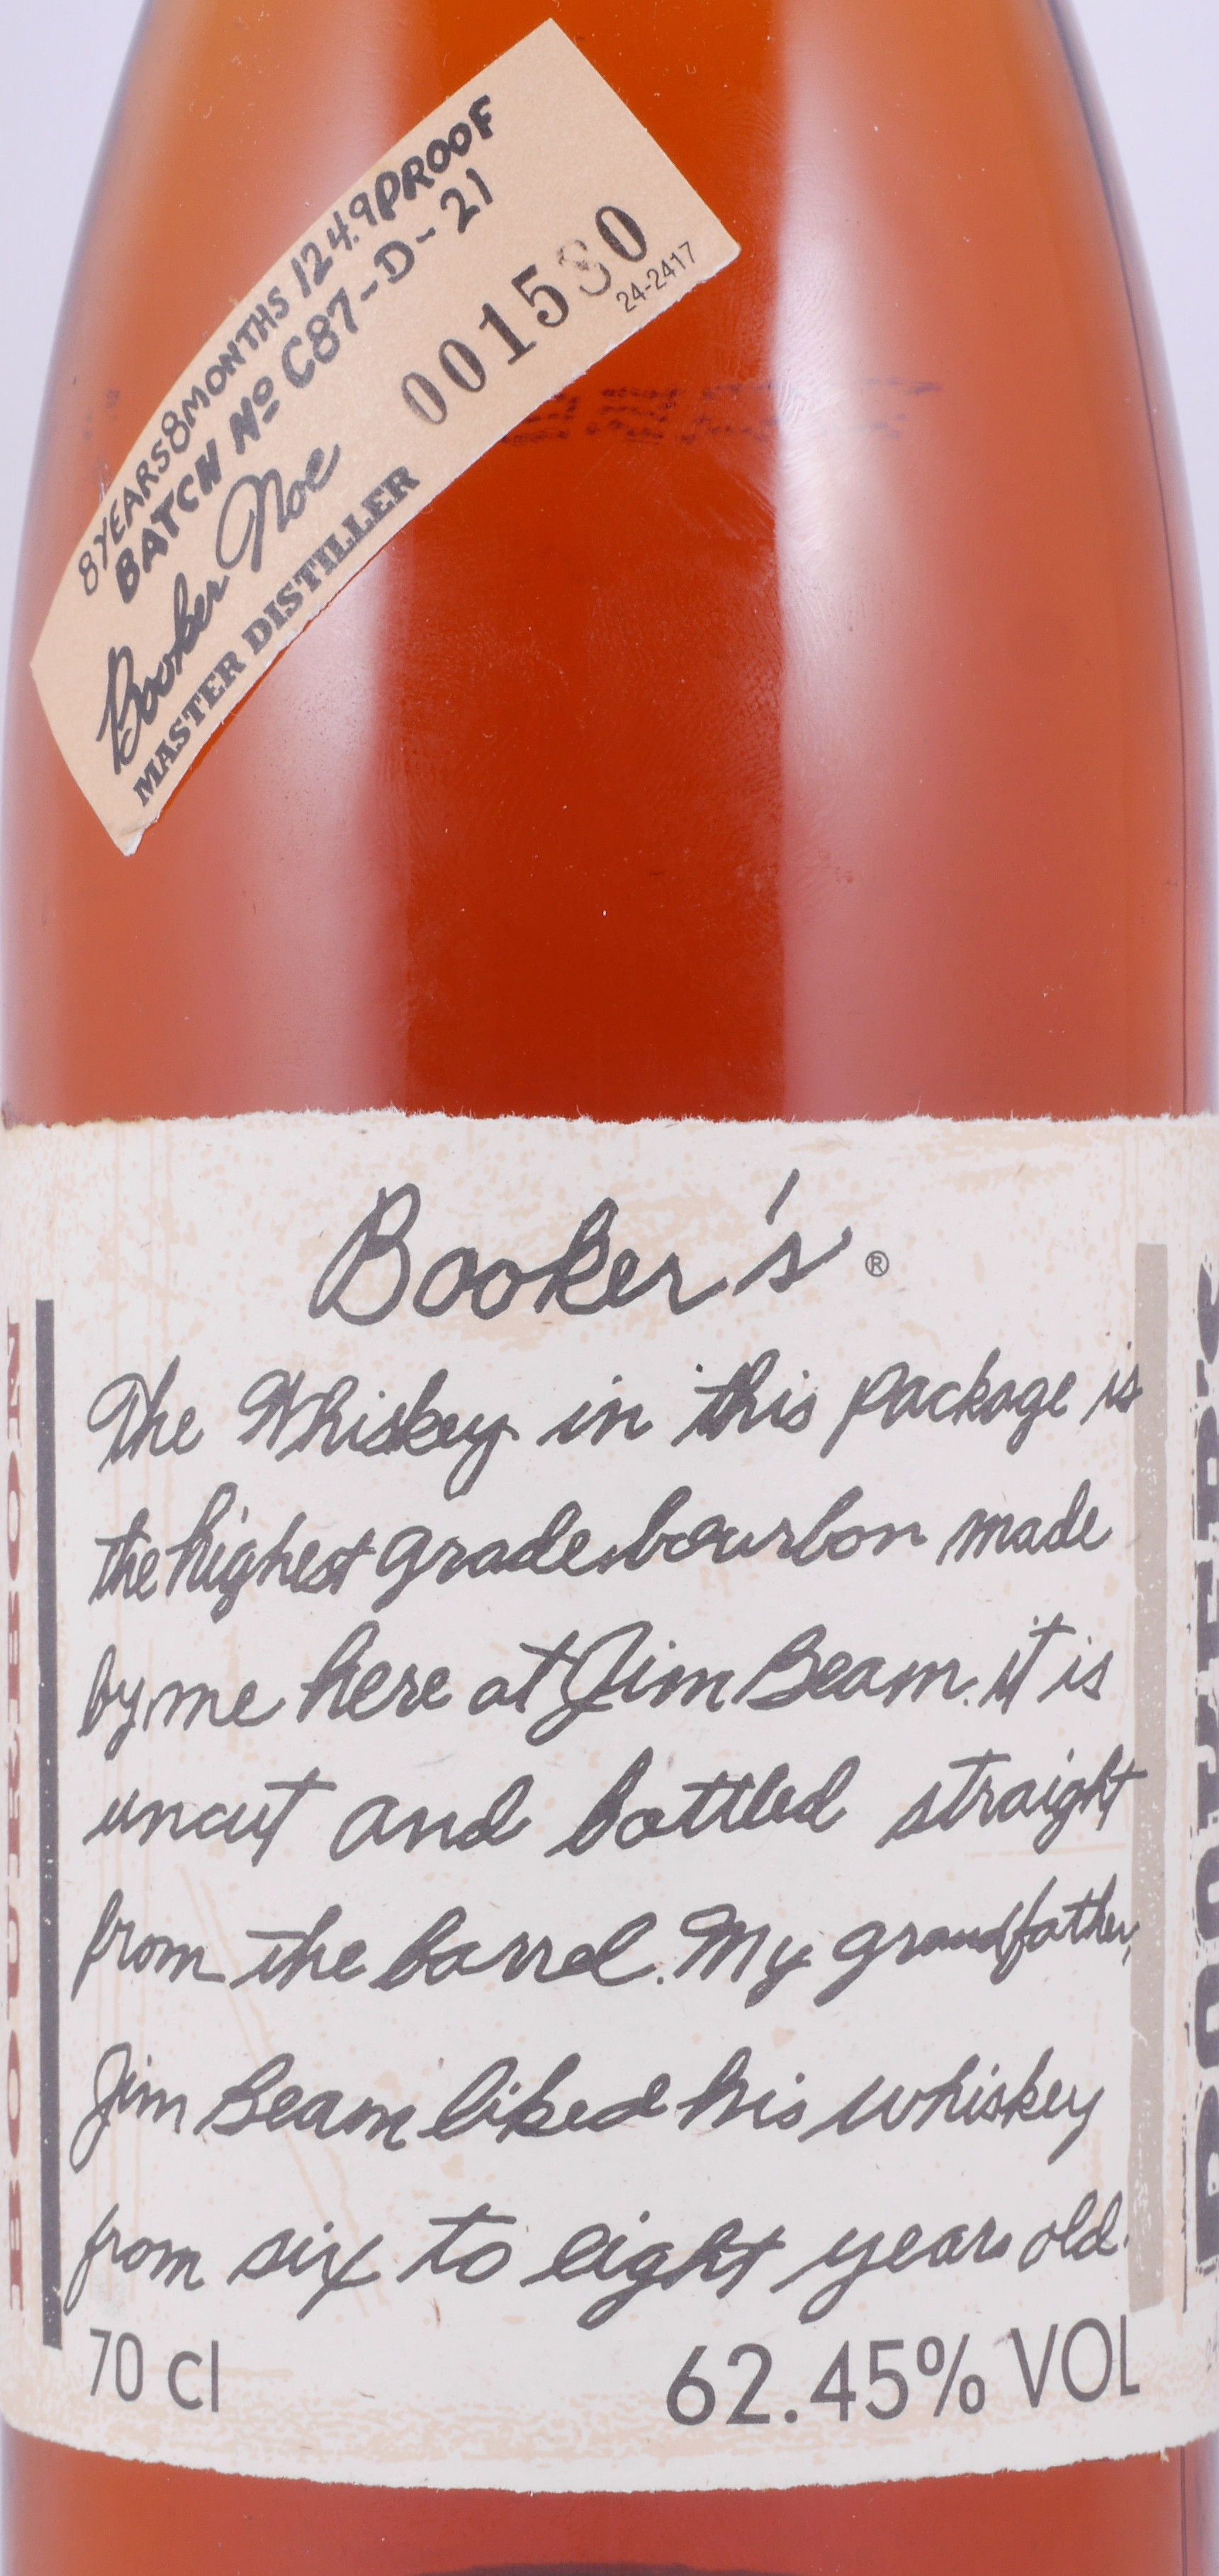 8 YEARS 8 MONTHS 124.9 PROOF
BATCH Nº C87-D-21
Booker Noe 001580
MASTER DISTILLER 24-2417
Booker's®
The Whiskey in this package is
the highest grade bourbon made
by me here at Jim Beam. it is
uncut and bottled straight
from the barrel. My grandfather,
Jim Beam liked his whiskey
from six to eight years old.
70 cl 62.45% VOL
BOURBON